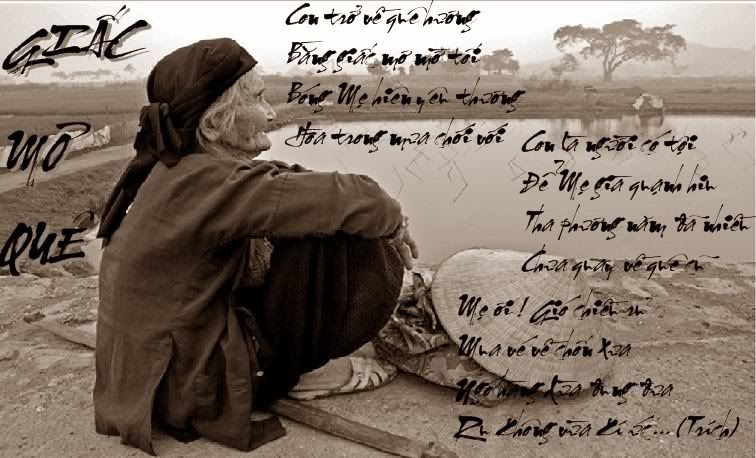 GIẤC
MƠ
QUÊ
Con trở về quê hương
Bằng giấc mơ mờ tối
Bóng Mẹ hiền yêu thương
Hòa trong mưa chới với
Con là người có tội
Để Mẹ già quạnh hiu
Tha phương năm đã nhiều
Chưa quay về quê cũ
Mẹ ơi ! Gió chiều rủ
Mưa về chốn xưa
hàng xưa đung đưa
Ru không vừa kí ức... (Trích)